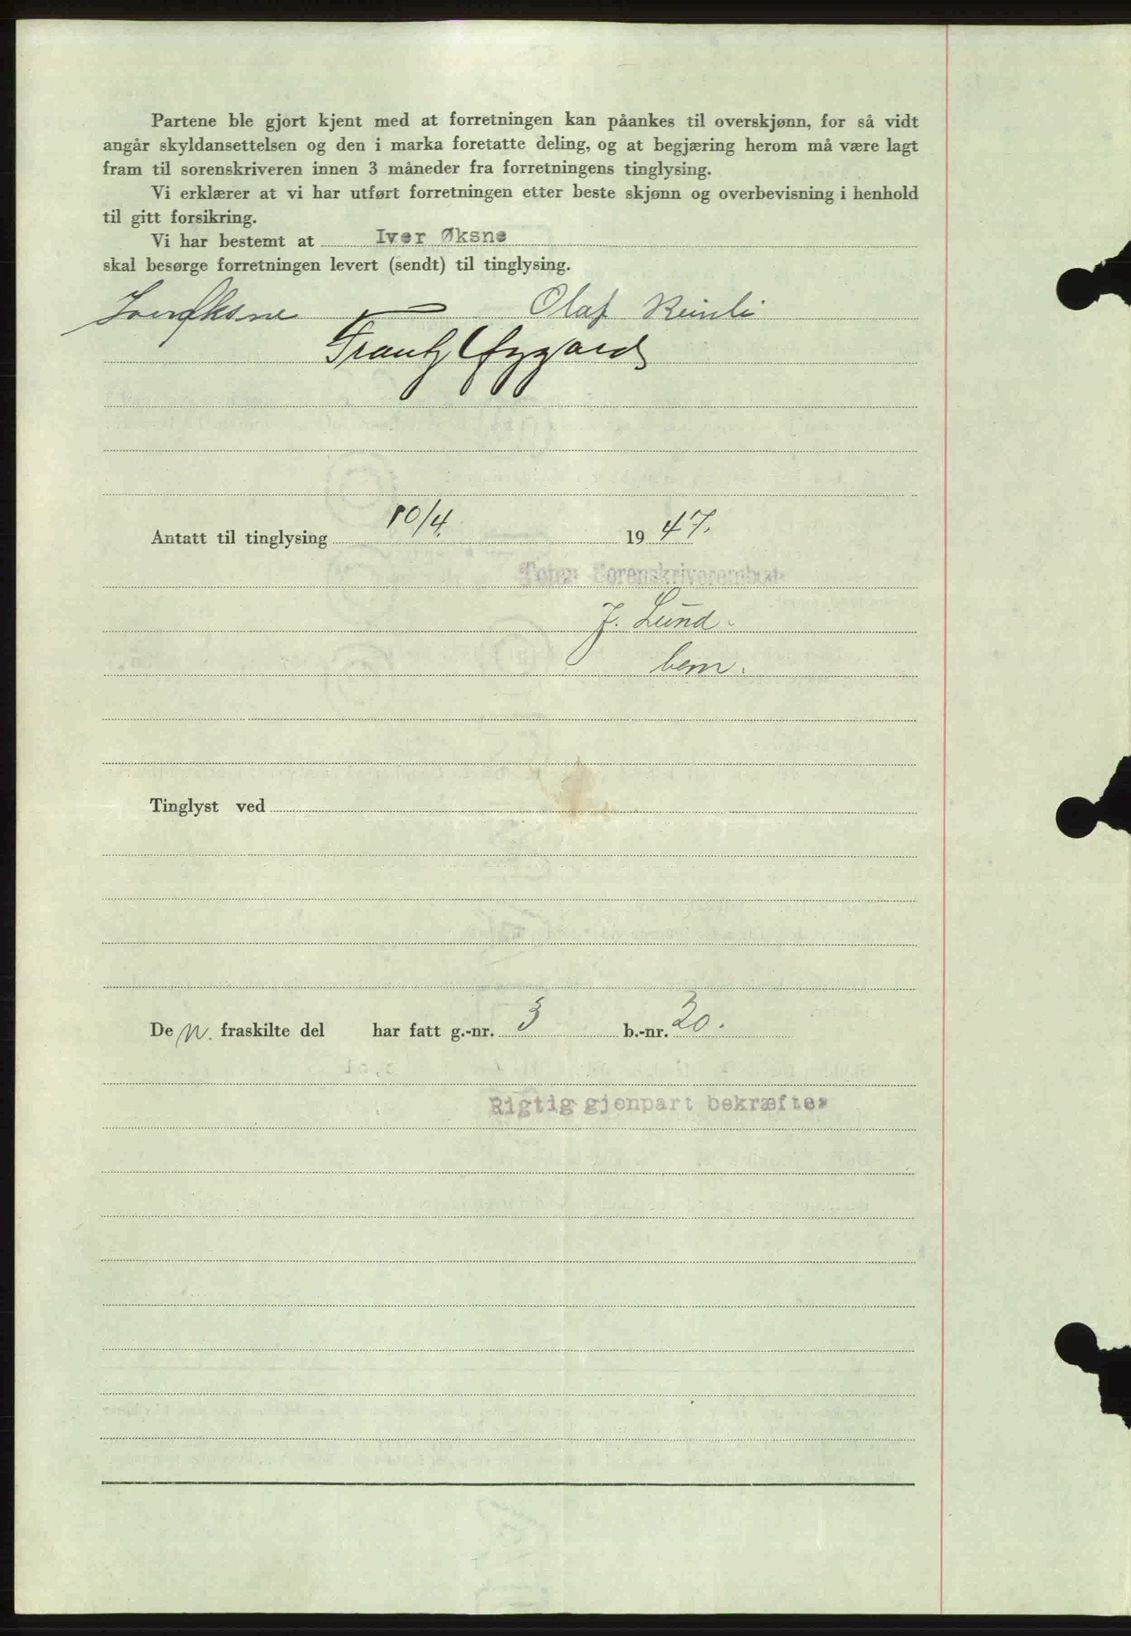 Partene ble gjort kjent med at forretningen kan påankes til overskjønn, for så vidt
angår skyldansettelsen og den i marka foretatte deling, og at begjæring herom må være lagt
fram til sorenskriveren innen 3 måneder fra forretningens tinglysing.
Vi erklærer at vi har utført forretningen etter beste skjønn og overbevisning i henhold
til gitt forsikring.
Vi har bestemt at Iver Øksne
skal besørge forretningen levert (sendt) til tinglysing.
Iver Øksne Olaf Reinli
Frantz Øygard
Antatt til tinglysing 10/4. 1947.
Toten Sorenskriverembete
J. Lund.
bem.
Tinglyst ved
De n. fraskilte del har fatt g.-nr. 3 b.-nr. 20.
Rigtig gjenpart bekræftes